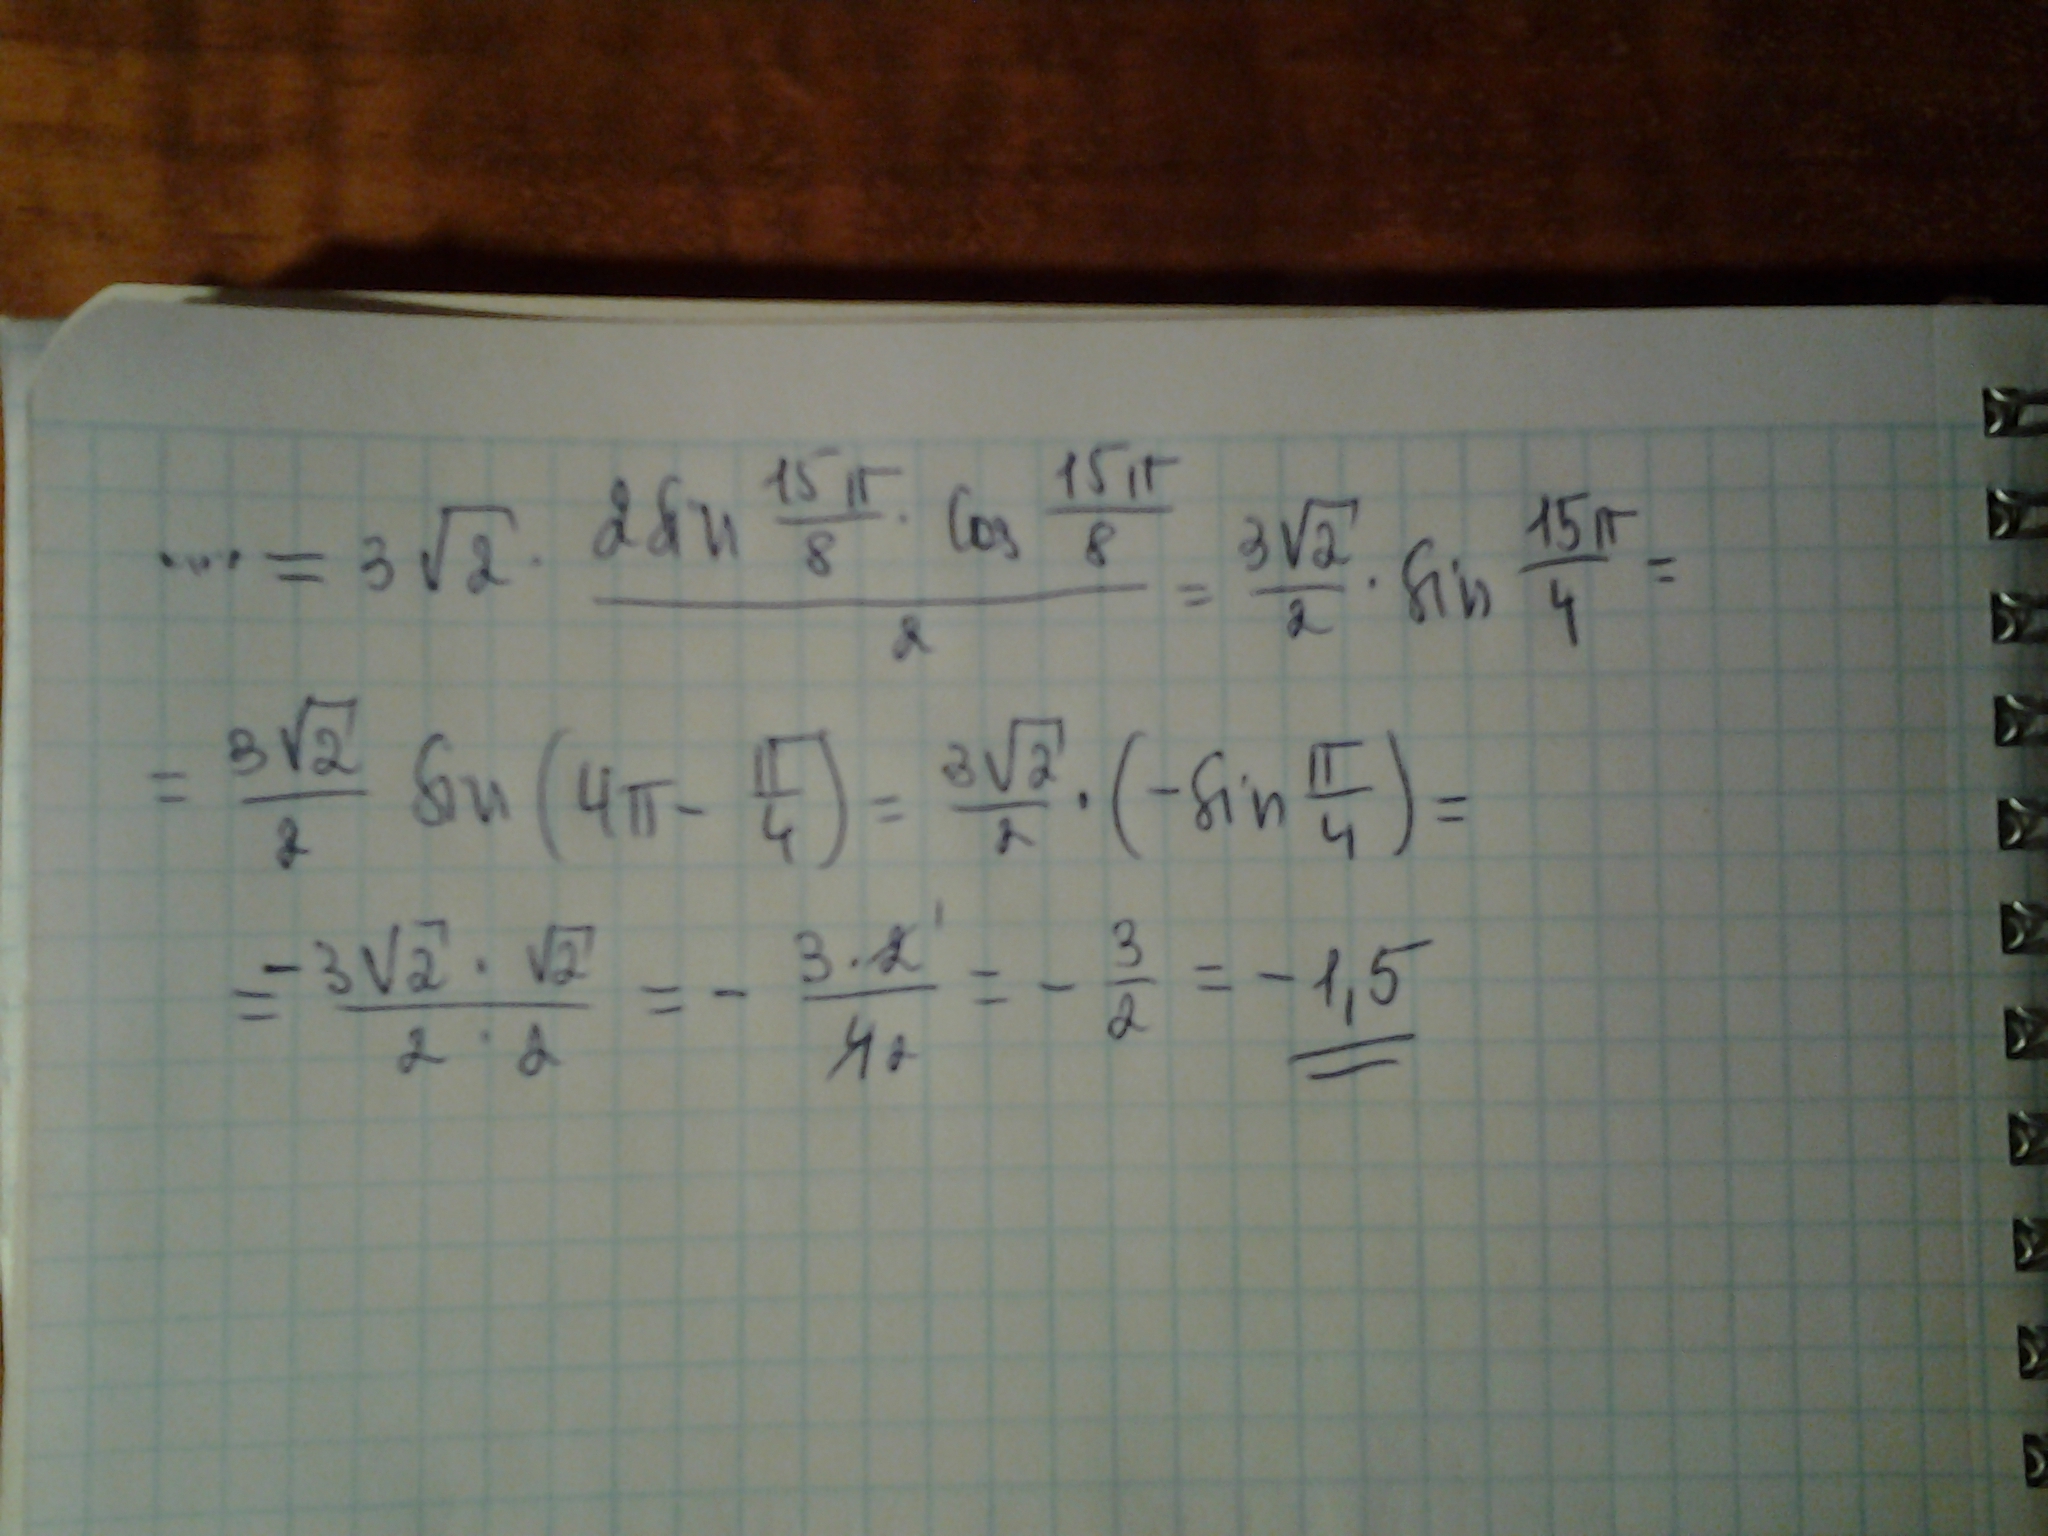 ... = 3√2 · (2 sin 15π/8 · cos 15π/8)/2 = 3√2/2 · sin 15π/4 =
= 3√2/2 sin (4π - π/4) = 3√2/2 · (- sin π/4) =
= -3√2 · √2/2 · 2 = - 3 · 2 1/4 2 = - 3/2 = - 1,5